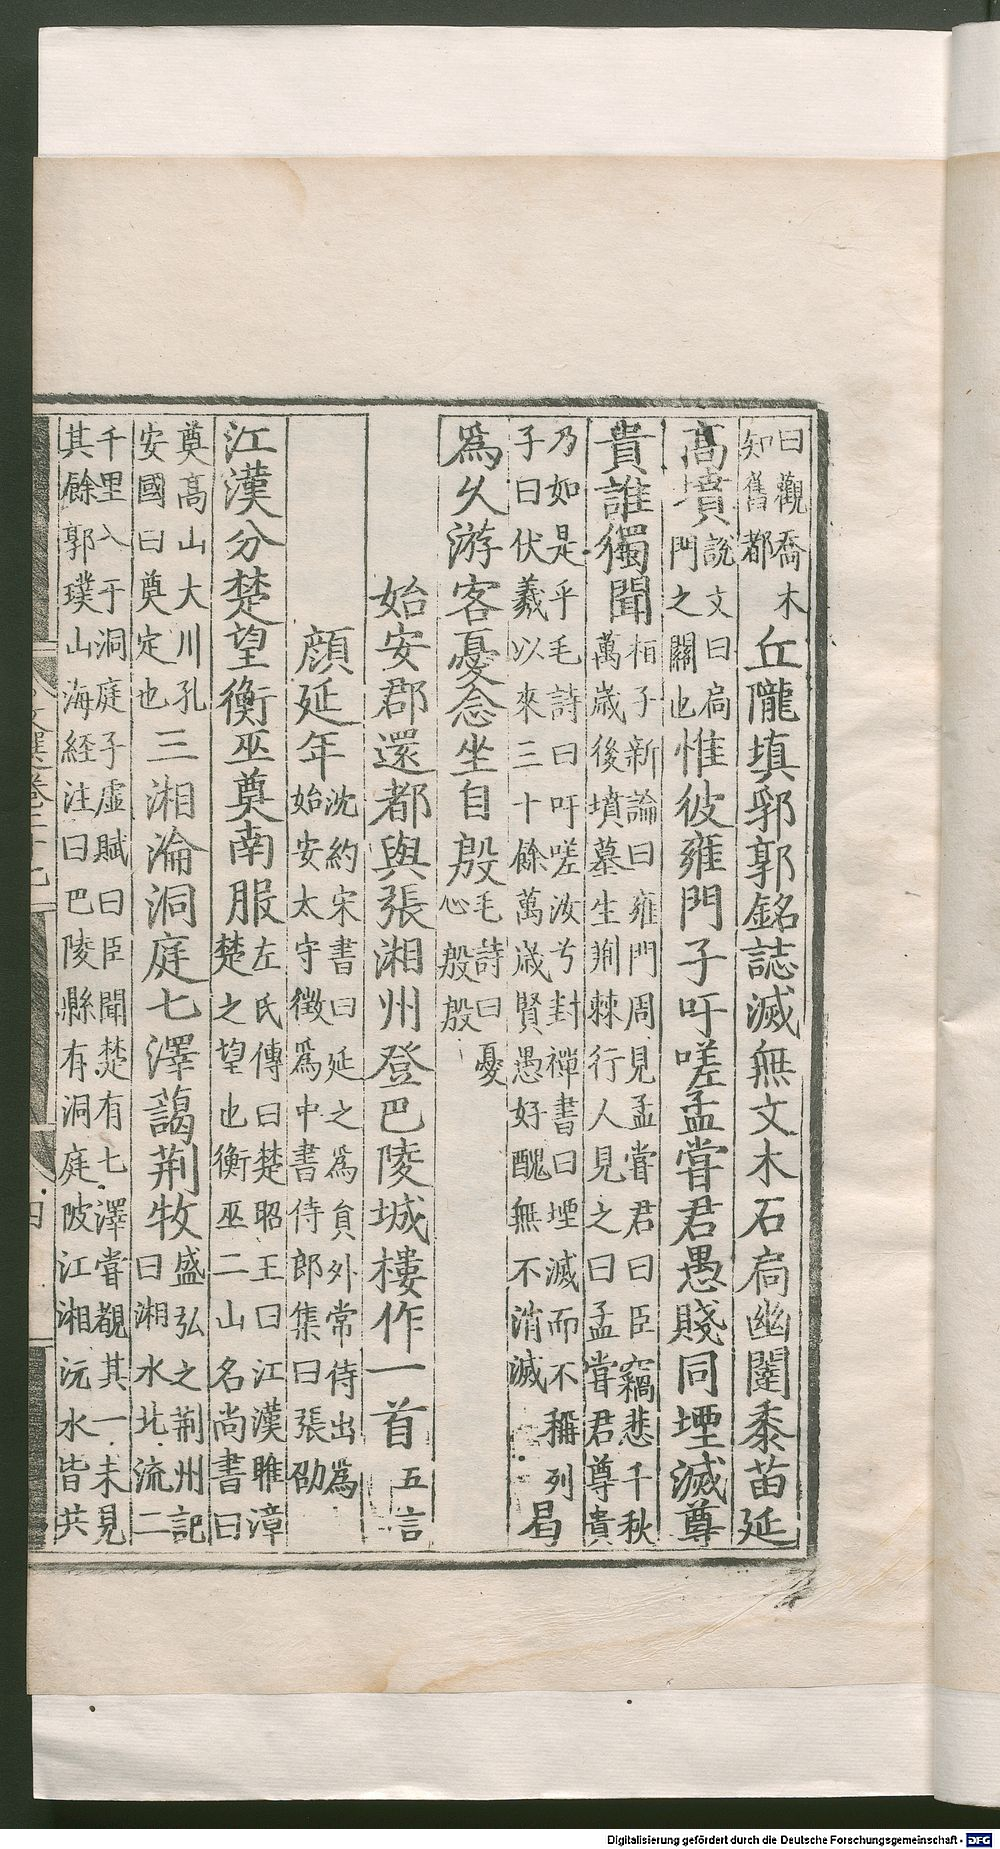 曰觀喬木知舊都丘隴填郛郭銘誌滅無文木石扃幽闥黍苗延
高墳說文曰扃門之關也惟彼雍門子吁嗟孟嘗君愚賤同堙滅尊
貴誰獨聞桓子新論曰雍門周見孟嘗君曰臣竊悲千秋萬歲後墳墓生荆棘行人見之曰孟嘗君尊貴
乃如是乎毛詩曰吁嗟汝兮封禪書曰堙滅而不稱列子曰伏羲以來三十餘萬歲賢愚好醜無不消滅曷
為久游客憂念坐自殷毛詩曰憂心殷殷
始安郡還都與張湘州登巴陵城樓作一首五言
顏延年沈約宋書曰延之為員外常侍出為始安太守徵為中書侍郎集曰張劭
江漢分楚望衡巫奠南服左氏傳曰楚昭王曰江漢睢漳楚之望也衡巫二山名尚書曰
奠高山大川孔安國曰奠定也三湘淪洞庭七澤藹荆牧盛弘之荆州記曰湘水北流二
千里入于洞庭子虛賦曰臣聞楚有七澤嘗觀其一未見其餘郭璞山海経注曰巴陵縣有洞庭陂江湘沅水皆共
Digitalisierung gefördert durch die Deutsche Forschungsgemeinschaft - DFG